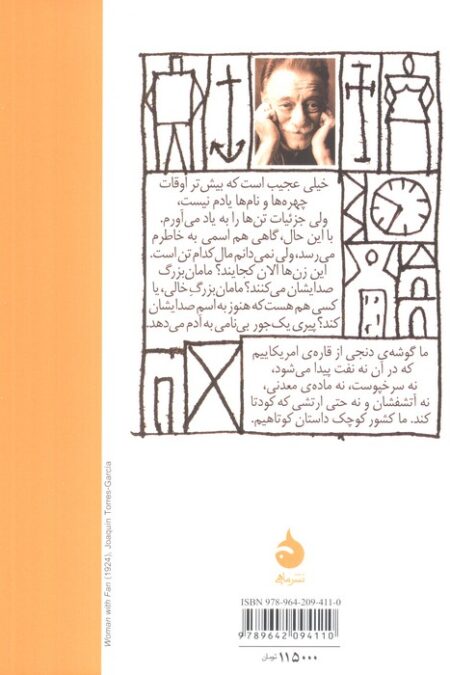 خیلی عجیب است که بیش‌تر اوقات
چهره‌ها و نام‌ها یادم نیست،
ولی جزئیات تن‌ها را به یاد می‌آورم.
با این حال، گاهی هم اسمی به خاطرم
می‌رسد، ولی نمی‌دانم مال کدام تن است.
این زن‌ها الان کجایند؟ مامان‌بزرگ
صدایشان می‌کنند؟ مامان‌بزرگِ خالی، یا
کسی هم هست که هنوز به اسم صدایشان
کند؟ پیری یک‌جور بی‌نامی به آدم می‌دهد.
ما گوشه‌ی دنجی از قاره‌ی امریکاییم
که در آن نه نفت پیدا می‌شود،
نه سرخپوست، نه ماده‌ی معدنی،
نه آتشفشان و نه حتی ارتشی که کودتا
کند. ما کشور کوچک داستان کوتاهیم.
Woman with Fan (1924), Joaquín Torres-García
نشر ماهی
ISBN 978-964-209-411-0
9 789642 094110
۱۱۵۰۰۰ تومان